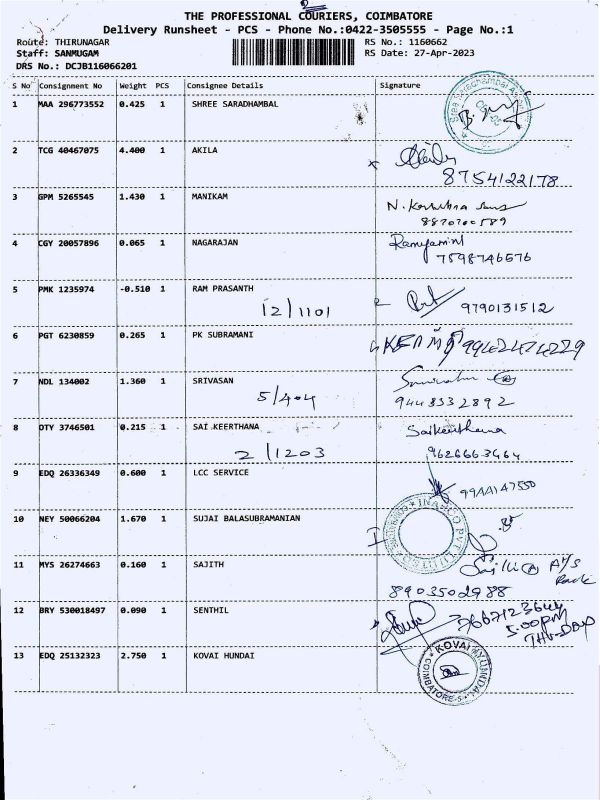 THE PROFESSIONAL COURIERS, COIMBATORE
Delivery Runsheet - PCS - Phone No.:0422-3505555 - Page No.:1
Route: THIRUNAGAR RS No.: 1160662
Staff: SANMUGAM RS Date: 27-Apr-2023
DRS No.: DCJB116066201
S No Consignment No Weight PCS Consignee Details Signature
1 MAA 296773552 0.425 1 SHREE SARADHAMBAL
2 TCG 40467075 4.400 1 AKILA
8754122178
3 GPM 5265545 1.430 1 MANIKAM N.
8870700589
4 CGY 20057896 0.065 1 NAGARAJAN
7598746576
5 PMK 1235974 -0.510 1 RAM PRASANTH
12/1101 9790131512
6 PGT 6230859 0.265 1 PK SUBRAMANI
7 NDL 134002 1.360 1 SRIVASAN
5/404 9448332892
8 DTY 3746501 0.215 1 SAI KEERTHANA Saikeerthana
2/1203 9626663464
9 EDQ 26336349 0.600 1 LCC SERVICE
10 NEY 50066204 1.670 1 SUJAI BALASUBRAMANIAN
11 MYS 26274663 0.160 1 SAJITH
8903502988
12 BRY 530018497 0.090 1 SENTHIL
5:00pm
13 EDQ 25132323 2.750 1 KOVAI HUNDAI
KOVAI HYUNDAI
COIMBATORE-5